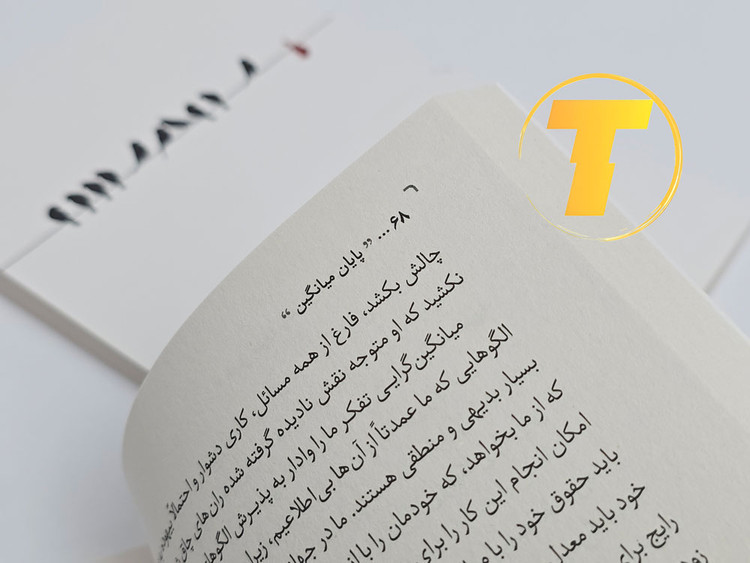 T
۶۸ ... ” پایان میانگین “
چالش بکشد، فارغ از همه مسائل، کاری دشوار و احتمالاً بیهوده
نکشید که او متوجه نقش نادیده گرفته شده ران‌های چاق
میانگین‌گرایی تفکر ما را وادار به پذیرش الگوهای
الگوهایی که ما عمدتاً از آن‌ها بی‌اطلاعیم، زیرا
بسیار بدیهی و منطقی هستند. ما در
که از ما بخواهد، که خودمان را با
امکان انجام این کار را برای
باید حقوق خود را با
خود باید معدل
رایج برای